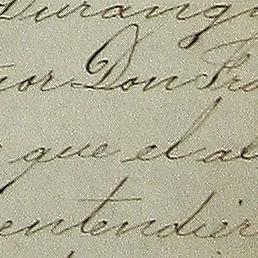 Durang
ñor Don Fra
que el al
entendier